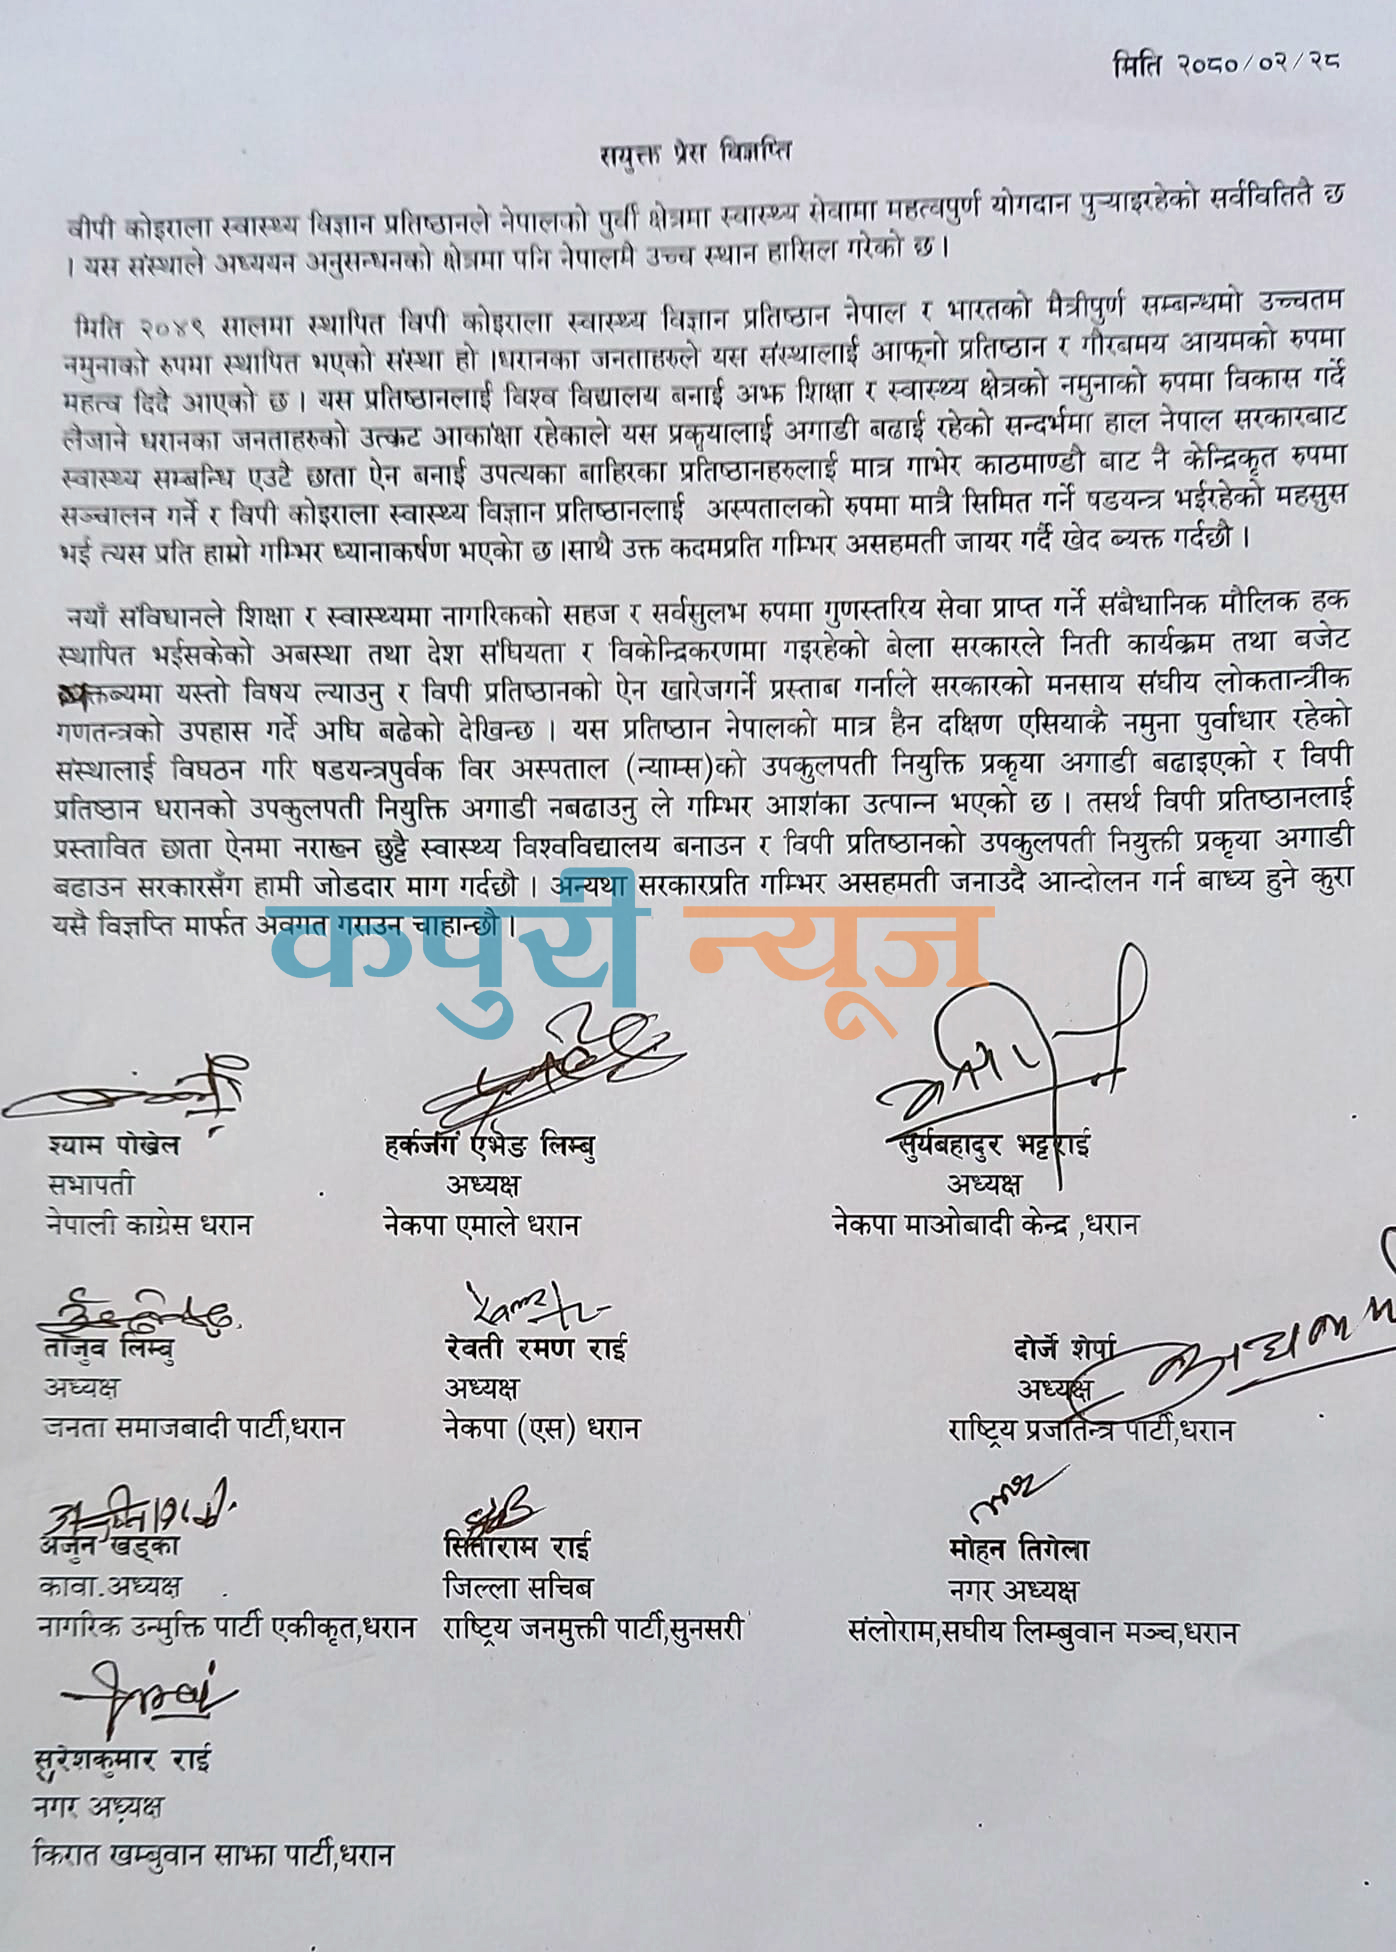 मिति २०८०/०२/२८
सयुक्त प्रेस विज्ञप्ति
वीपी कोइराला स्वास्थ्य विज्ञान प्रतिष्ठानले नेपालको पुर्वी क्षेत्रमा स्वास्थ्य सेवामा महत्वपुर्ण योगदान पुऱ्याइरहेको सर्ववितितै छ
। यस संस्थाले अध्ययन अनुसन्धनको क्षेत्रमा पनि नेपालमै उच्च स्थान हासिल गरेको छ।
मिति २०४९ सालमा स्थापित विपी कोइराला स्वास्थ्य विज्ञान प्रतिष्ठान नेपाल र भारतको मैत्रीपुर्ण सम्बन्धमो उच्चतम
नमुनाको रुपमा स्थापित भएको संस्था हो ।धरानका जनताहरुले यस संस्थालाई आफ्नो प्रतिष्ठान र गौरबमय आयमको रुपमा
महत्व दिदै आएको छ। यस प्रतिष्ठानलाई विश्व विद्यालय बनाई अझ शिक्षा र स्वास्थ्य क्षेत्रको नमुनाको रुपमा विकास गर्दे
लैजाने धरानका जनताहरुको उत्कट आकांक्षा रहेकाले यस प्रकृयालाई अगाडी बढाई रहेको सन्दर्भमा हाल नेपाल सरकारबाट
स्वास्थ्य सम्बन्धि एउटै छाता ऐन बनाई उपत्यका बाहिरका प्रतिष्ठानहरुलाई मात्र गाभेर काठमाण्डौ बाट नै केन्द्रिकृत रुपमा
सञ्चालन गर्ने र विपी कोइराला स्वास्थ्य विज्ञान प्रतिष्ठानलाई अस्पतालको रुपमा मात्रै सिमित गर्ने षडयन्त्र भईरहेको महसुस
भई त्यस प्रति हाम्रो गम्भिर ध्यानाकर्षण भएको छ ।साथै उक्त कदमप्रति गम्भिर असहमती जायर गर्दै खेद ब्यक्त गर्दछौ।
नयाँ संविधानले शिक्षा र स्वास्थ्यमा नागरिकको सहज र सर्वसुलभ रुपमा गुणस्तरिय सेवा प्राप्त गर्ने संबैधानिक मौलिक हक
स्थापित भईसकेको अबस्था तथा देश संघियता र विकेन्द्रिकरणमा गइरहेको बेला सरकारले निती कार्यक्रम तथा बजेट
क्तब्यमा यस्तो विषय ल्याउनु र विपी प्रतिष्ठानको ऐन खारेजगर्ने प्रस्ताब गर्नाले सरकारको मनसाय संघीय लोकतान्त्रीक
गणतन्त्रको उपहास गर्दे अघि बढेको देखिन्छ। यस प्रतिष्ठान नेपालको मात्र हैन दक्षिण एसियाकै नमुना पुर्वाधार रहेको
संस्थालाई विघठन गरि षडयन्त्रपुर्वक विर अस्पताल (न्याम्स)को उपकुलपती नियुक्ति प्रकृया अगाडी बढाइएको र विपी
प्रतिष्ठान धरानको उपकुलपती नियुक्ति अगाडी नबढाउनु ले गम्भिर आशंका उत्पान्न भएको छ। तसर्थ विपी प्रतिष्ठानलाई
प्रस्तावित छाता ऐनमा नराख्न छुट्टै स्वास्थ्य विश्वविद्यालय बनाउन र विपी प्रतिष्ठानको उपकुलपती नियुक्ती प्रकृया अगाडी
बढाउन सरकारसँग हामी जोडदार माग गर्दछौ। अन्यथा सरकारप्रति गम्भिर असहमती जनाउदै आन्दोलन गर्न बाध्य हुने कुरा
यसै विज्ञप्ति मार्फत अवगत गराउन चाहान्छौ।
कपुरी न्यूज
श्याम पोखेल हर्कजंग एभेङ लिम्बु सुर्यबहादुर भट्टराई
सभापती अध्यक्ष अध्यक्ष
नेपाली काग्रेस धरान नेकपा एमाले धरान नेकपा माओबादी केन्द्र ,धरान
ताजुव लिम्बु रेवती रमण राई दोर्जे शेर्पा
अध्यक्ष अध्यक्ष अध्यक्ष
जनता समाजबादी पार्टी,धरान नेकपा (एस) धरान राष्ट्रिय प्रजातन्त्र पार्टी,धरान
अर्जुन खड्का सिताराम राई मोहन तिगेला
कावा.अध्यक्ष जिल्ला सचिब नगर अध्यक्ष
नागरिक उन्मुक्ति पार्टी एकीकृत,धरान राष्ट्रिय जनमुक्ती पार्टी,सुनसरी संलोराम,सघीय लिम्बुवान मञ्च,धरान
सुरेशकुमार राई
नगर अध्यक्ष
किरात खम्बुवान साझा पार्टी,धरान